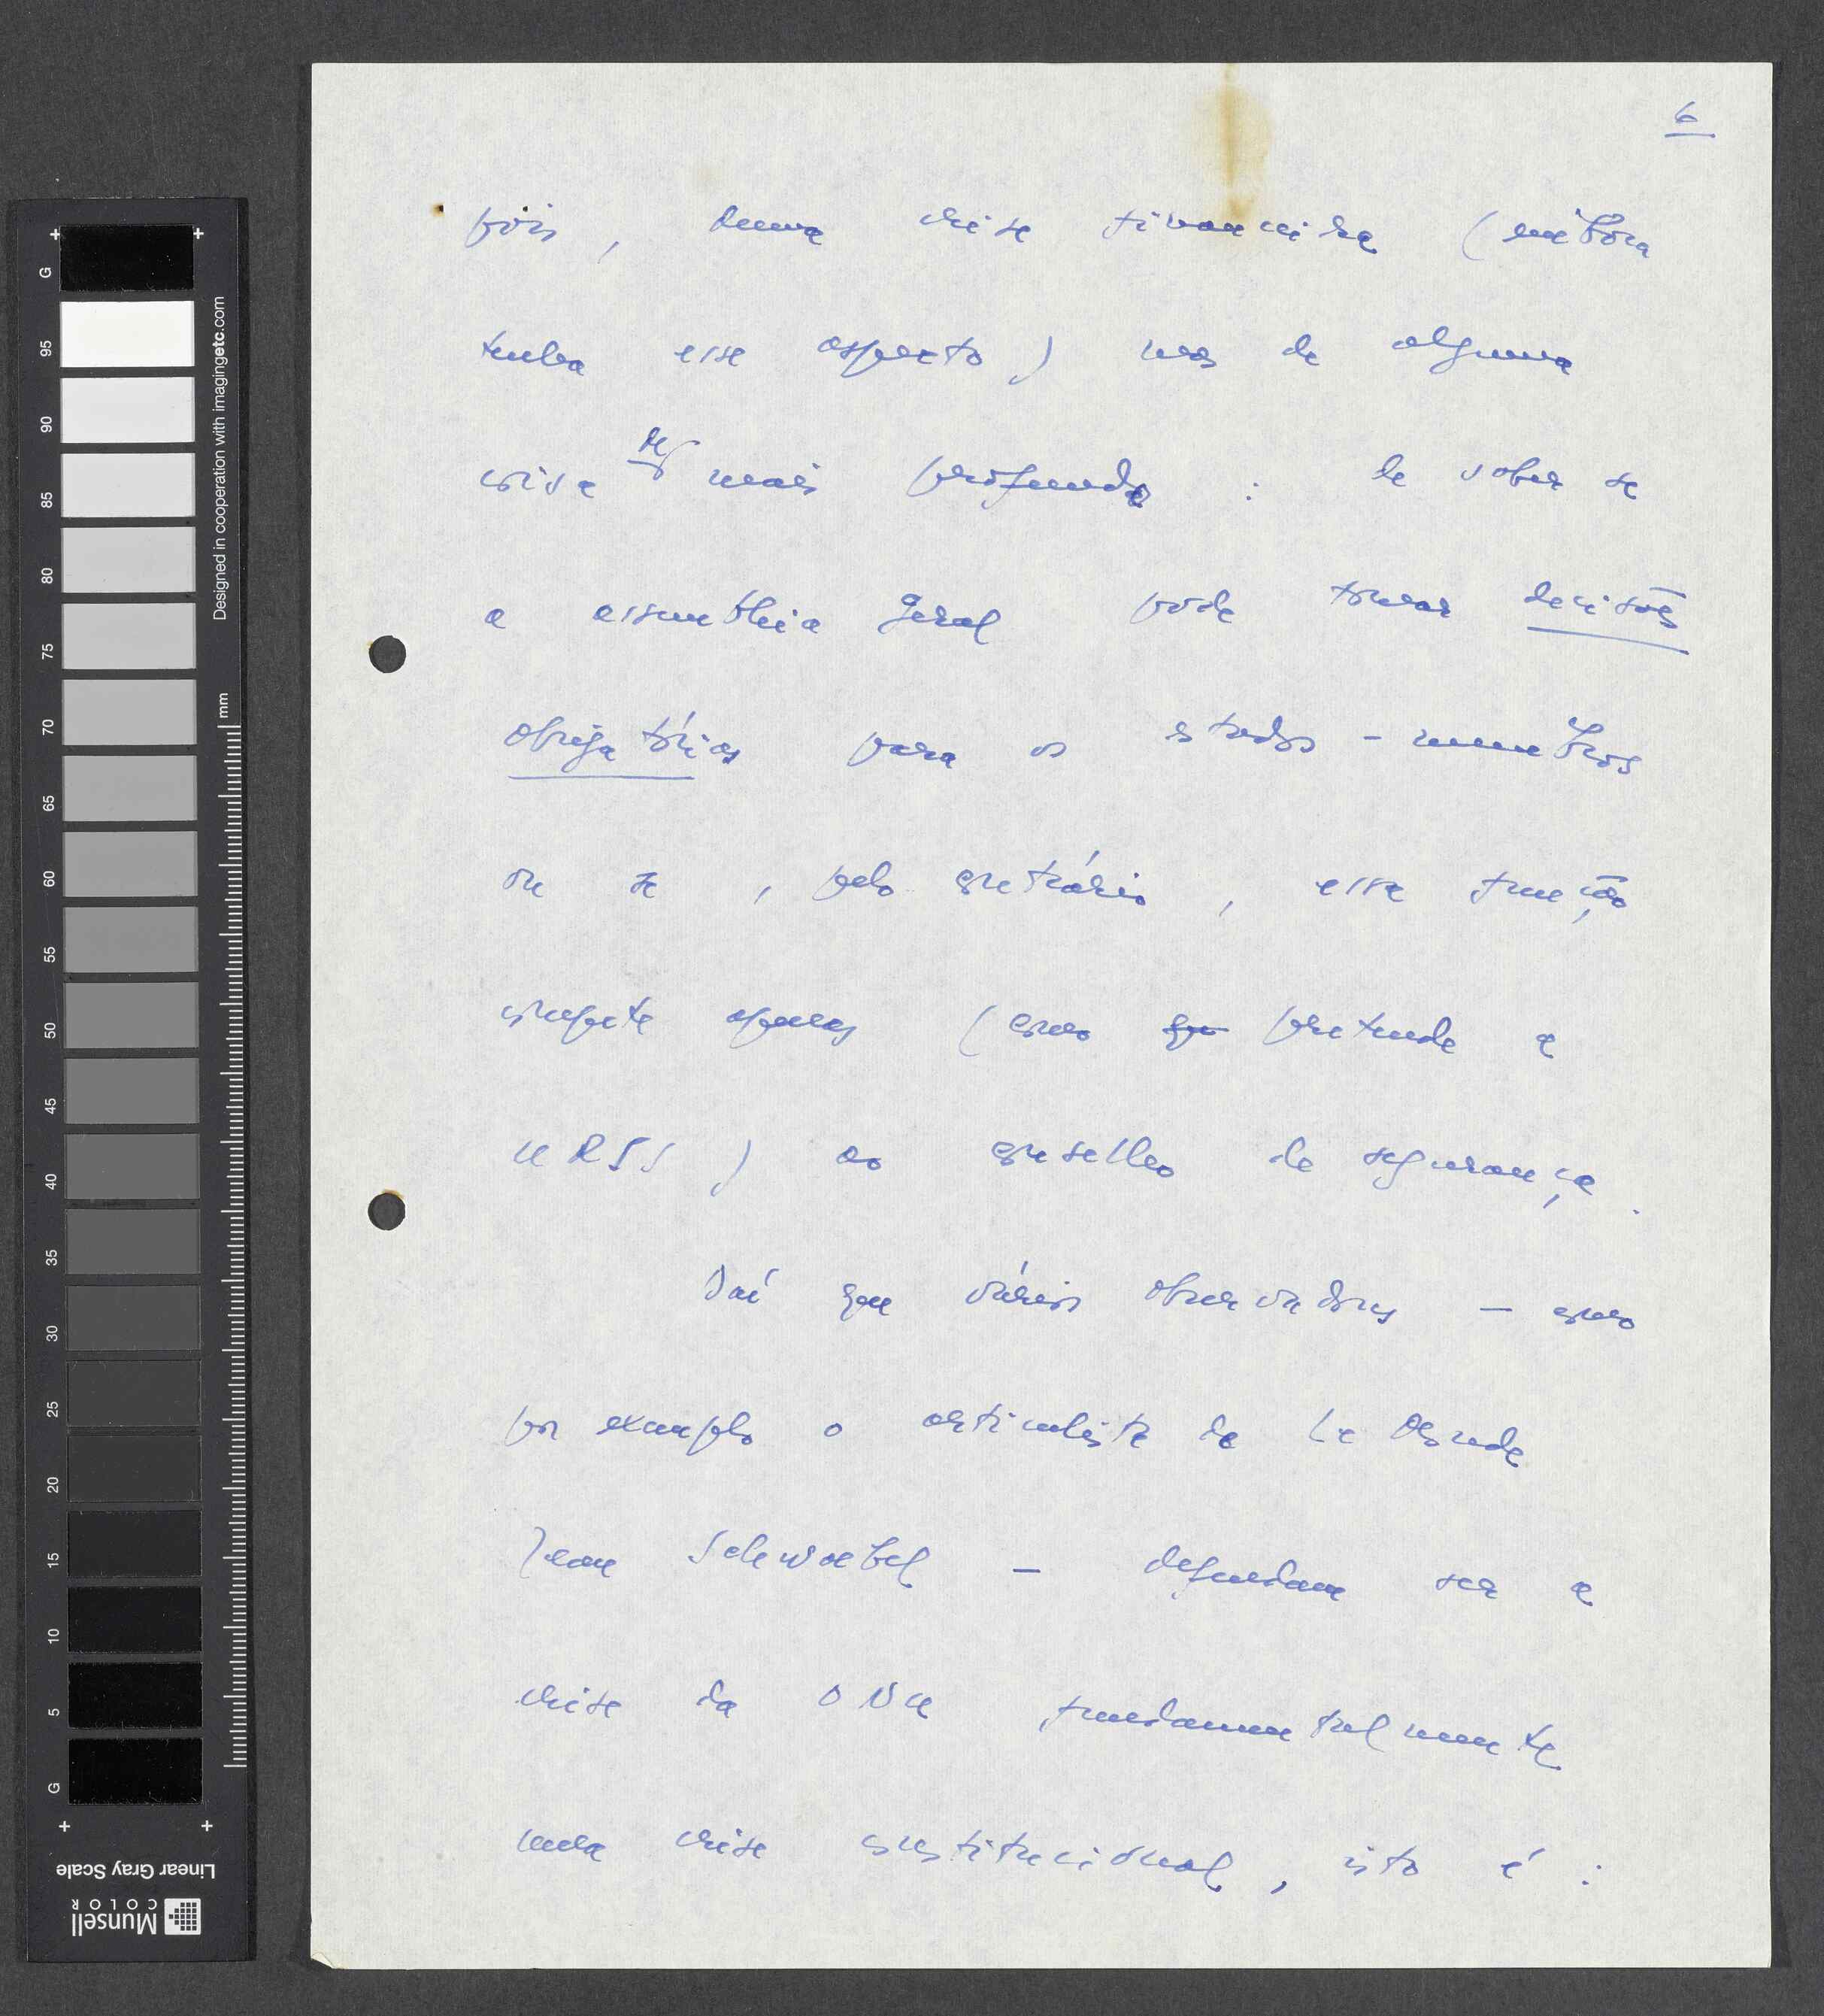 6
pois, duma crise financeira (embora
tenha esse aspecto) mas de alguma
coisa de mais profundo : de saber se
a assembleia geral pode tomar decisões
obrigatórias para os estados-membros
ou se, pelo contrário, essa função
compete apenas (como que pretende a
URSS) ao conselho de segurança.
Daí que vários observadores – como
por exemplo o articulista de Le Monde
Jean Schwoebel – defendam ser a
crise da ONU fundamentalmente
uma crise constitucional, isto é :
+ +
G
95
90
85
80
75
70
65
60
55
50
45
40
35
30
25
20
15
10
5
G
+ +
Designed in cooperation with imagingetc.com
mm
Linear Gray Scale
Munsell
COLOR